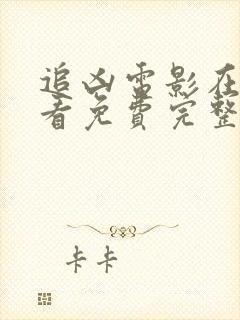 追凶電影在
看免費完整
卡卡